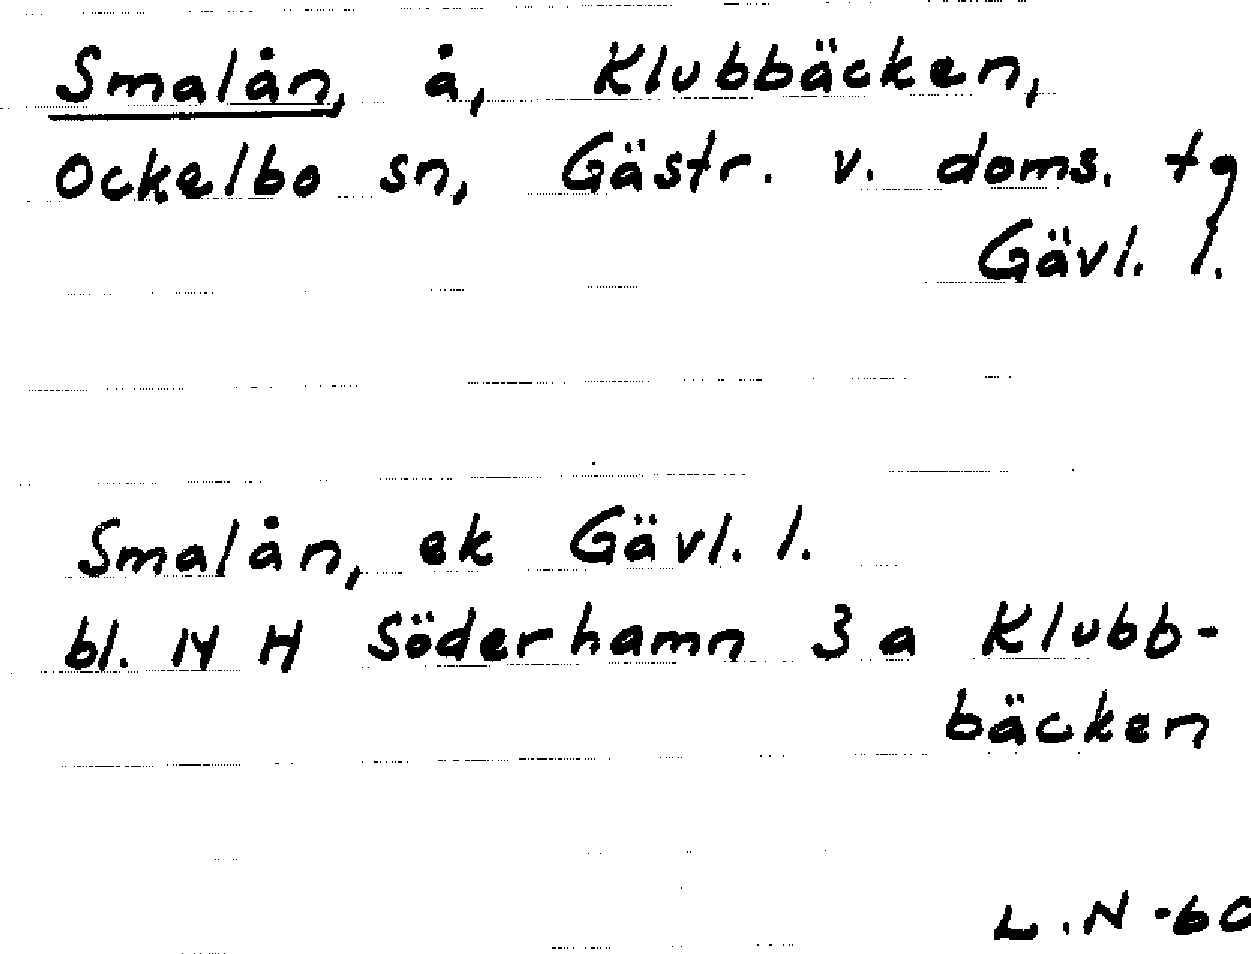 Smalån, å, Klubbäcken,
Ockelbo sn, Gästr. v. doms. tg
Gävl. l.
Smalån, ek Gävl. l.
bl. 14 H Söderhamn 3 a Klubb-
bäcken
L.N -60